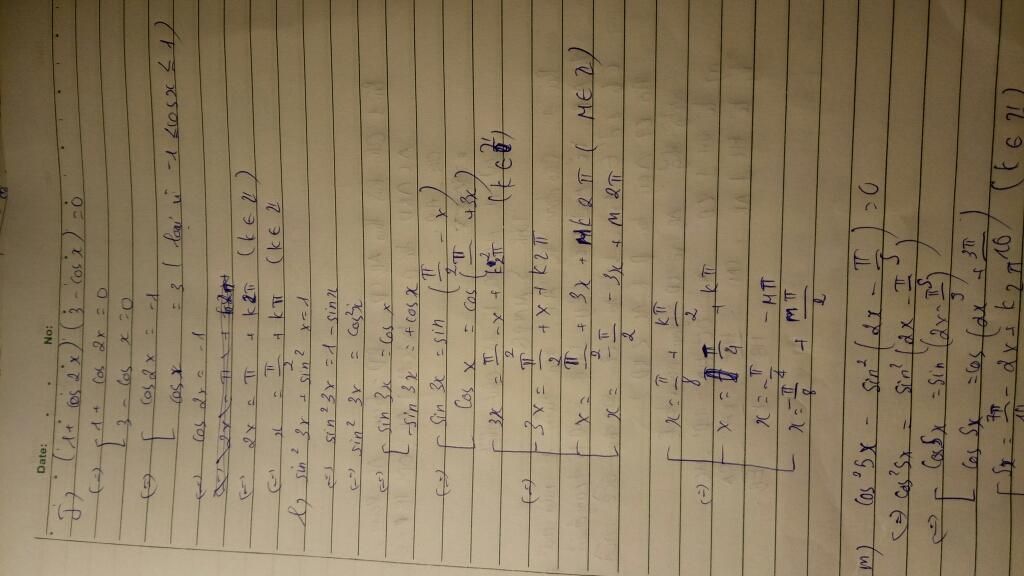 Date: No:
j) (1 + cos 2x) (3 - cos x) = 0
(=) [ 1 + cos 2x = 0
3 - cos x = 0
(=) [ cos 2x = -1
cos x = 3 ( loại vì -1 ≤ cos x ≤ 1 )
(=) cos 2x = -1
(=) 2x = π + k2π (k ∈ Z)
(=) x = π/2 + kπ (k ∈ Z
l) sin² 3x + sin² x = 1
(=) sin² 3x = 1 - sin x
(=) sin² 3x = cos² x
(=) [ sin 3x = cos x
- sin 3x = + cos x
(=) [ sin 3x = sin (π/2 - x)
cos x = cos (π/2 + 3x)
[ 3x = π/2 - x + k2π (k ∈ Z)
(=) 3x = π/2 + x + k2π
x = π/2 + 3x + M2π ( M ∈ Z)
x = -π/2 - 3x + m2π
(=) [ x = π/8 + kπ/2
x = π/4 + kπ
x = -π/4 - Mπ
x = -π/8 + Mπ/2
m) cos² 5x - sin² (2x - π/5) = 0
(=) cos² 5x = sin² (2x - π/5)
(=) [ cos 5x = sin (2x - π/5)
cos 5x = cos (2x +
[ 5x = - 2x + k2π (k ∈ Z)